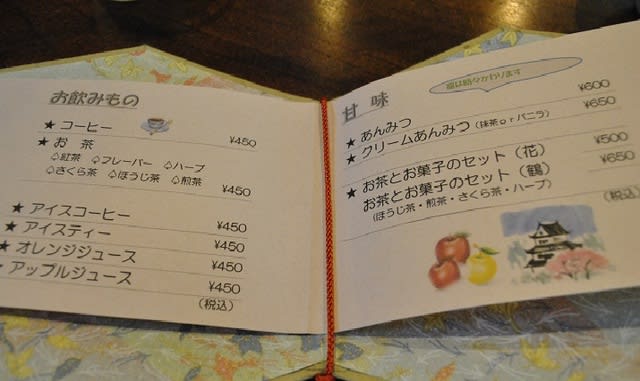 お飲みもの
★ コーヒー ¥450
★ お 茶
♤紅茶 ♤フレーバー ♤ハーブ
♤さくら茶 ♤ほうじ茶 ♤煎茶 ¥450
★ アイスコーヒー ¥450
★ アイスティー ¥450
★ オレンジジュース ¥450
★ アップルジュース ¥450
(税込)
甘 味
★ あんみつ ¥600
★ クリームあんみつ (抹茶 o r バニラ) ¥650
★ お茶とお菓子のセット (花) ¥500
お茶とお菓子のセット (鶴) ¥650
(ほうじ茶・煎茶・さくら茶・ハーブ) (税込)